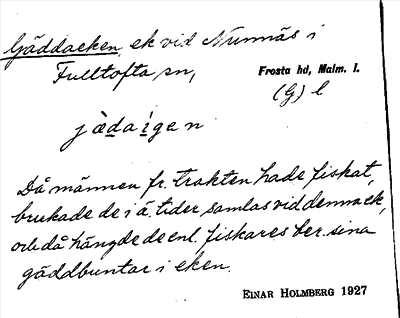 Gäddaeken, ek vid Nunnäs i
Fulltofta sn, Frosta hd, Malm. l.
(G) l
jèdaígen
Då männen fr. trakten hade fiskat,
brukade de i ä. tider samlas vid denna ek,
och då hängde de enl. fiskares ber. sina
gäddbuntar i eken.
EINAR HOLMBERG 1927